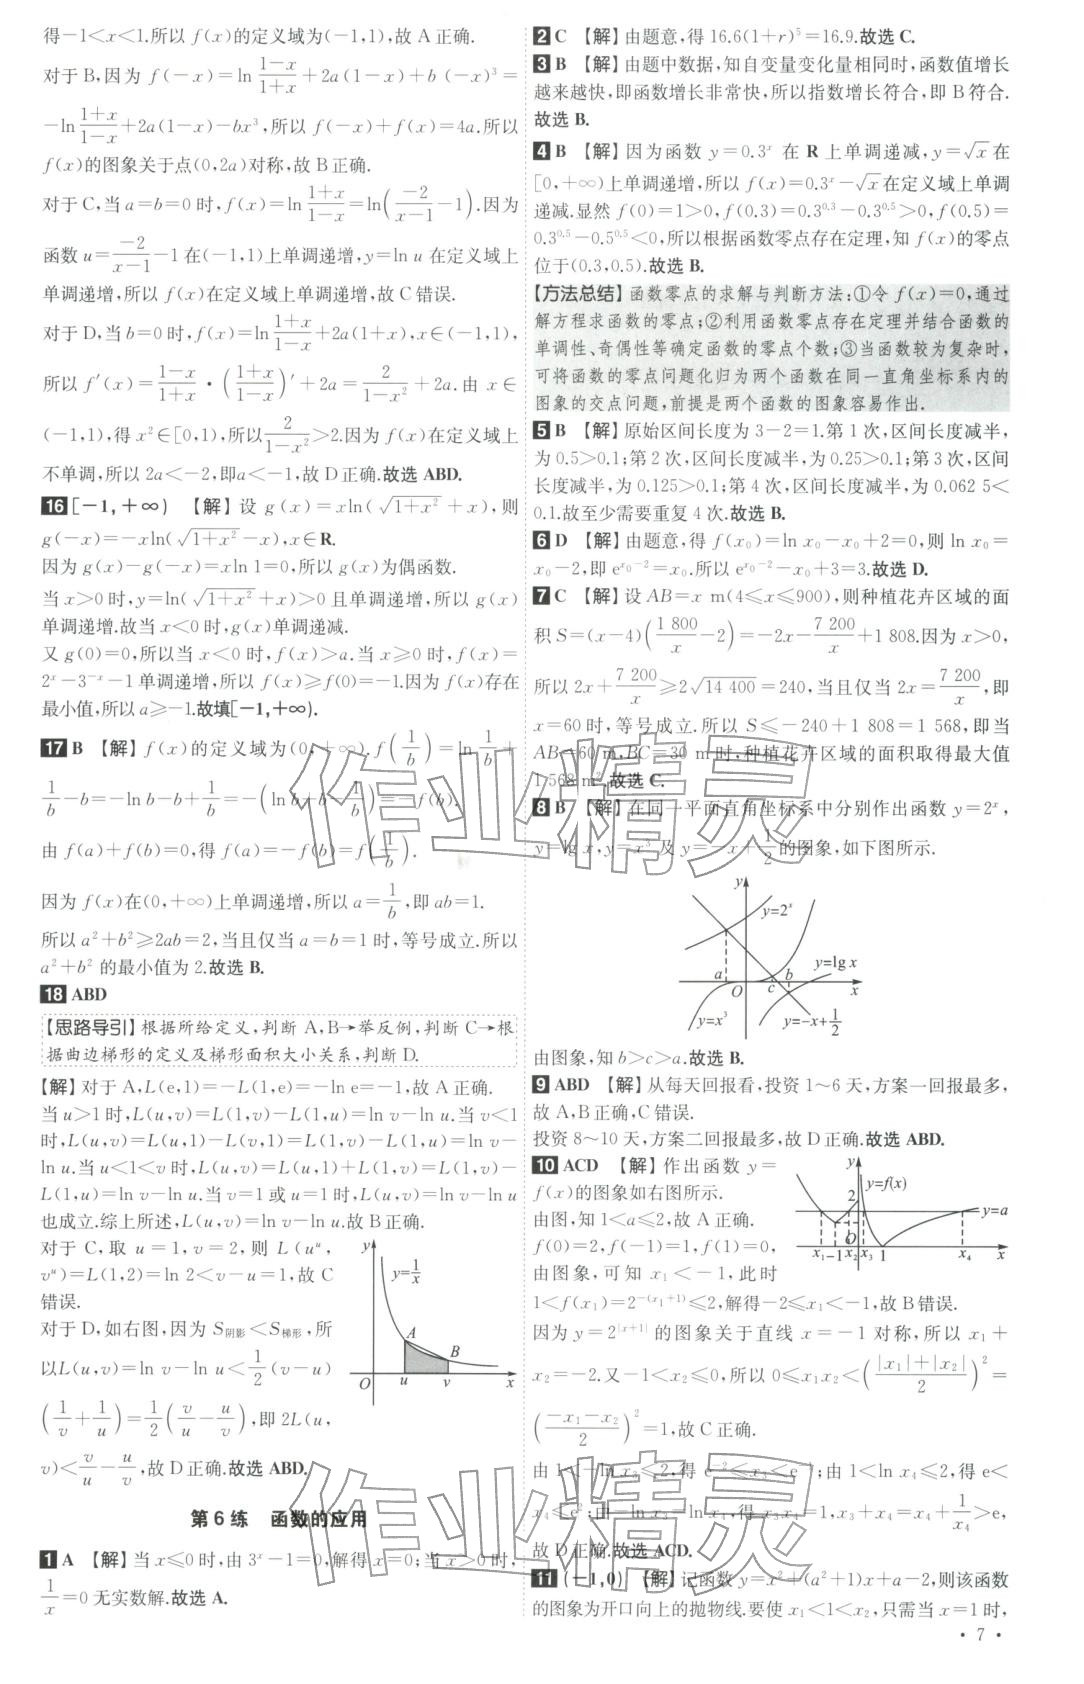 得-1<x<1.所以 f(x)的定义域为(-1,1),故 A正确.
对于B,因为 f(-x)=ln (1-x)/(1+x) +2a(1-x)+b(-x)³=
-ln (1+x)/(1-x) +2a(1-x)-bx³,所以 f(-x)+f(x)=4a.所以
f(x)的图象关于点(0,2a)对称,故 B正确.
对于C,当 a=b=0 时,f(x)=ln (1+x)/(1-x) =ln( (-2)/(x-1) -1).因为
函数 u= (-2)/(x-1) -1 在(-1,1)上单调递增,y=ln u 在定义域上
单调递增,所以 f(x)在定义域上单调递增,故 C 错误.
对于D,当 b=0 时,f(x)=ln (1+x)/(1-x) +2a(1+x),x∈(-1,1),
所以 f′(x)= (1-x)/(1+x) · ( (1+x)/(1-x) )′+2a= 2/(1-x²) +2a.由 x∈
(-1,1),得 x²∈[0,1),所以 2/(1-x²) >2.因为 f(x)在定义域上
不单调,所以 2a<-2,即a<-1,故 D正确.故选 ABD.
16 [-1,+∞) 【解】设 g(x)=xln(√(1+x²)+x),则
g(-x)=-xln(√(1+x²)-x),x∈R.
因为 g(x)-g(-x)=xln 1=0,所以 g(x)为偶函数.
当 x>0 时,y=ln(√(1+x²)+x)>0 且单调递增,所以 g(x)
单调递增.故当 x<0 时,g(x)单调递减.
又 g(0)=0,所以当 x<0 时,f(x)>a.当 x≥0 时,f(x)=
2ˣ-3⁻ˣ-1 单调递增,所以 f(x)≥f(0)=-1.因为 f(x)存在
最小值,所以 a≥-1.故填[-1,+∞).
17 B 【解】f(x)的定义域为(0,+∞).f(1/b)=ln 1/b +
1/b -b=-ln b-b+ 1/b =-(ln b+b- 1/b)=-f(b).
由 f(a)+f(b)=0,得 f(a)=-f(b)=f(1/b).
因为 f(x)在(0,+∞)上单调递增,所以 a= 1/b ,即 ab=1.
所以 a²+b²≥2ab=2,当且仅当 a=b=1 时,等号成立.所以
a²+b² 的最小值为 2.故选 B.
18 ABD
【思路导引】根据所给定义,判断 A,B→举反例,判断 C→根
据曲边梯形的定义及梯形面积大小关系,判断 D.
【解】对于 A,L(e,1)=-L(1,e)=-ln e=-1,故 A 正确.
当 u>1 时,L(u,v)=L(1,v)-L(1,u)=ln v-ln u.当 v<1
时,L(u,v)=L(u,1)-L(v,1)=L(1,v)-L(1,u)=ln v-
ln u.当 u<1<v 时,L(u,v)=L(u,1)+L(1,v)=L(1,v)-
L(1,u)=ln v-ln u.当 v=1 或 u=1 时,L(u,v)=ln v-ln u
也成立.综上所述,L(u,v)=ln v-ln u.故 B 正确.
对于 C,取 u=1,v=2,则 L(uᵘ,
vᵘ)=L(1,2)=ln 2<v-u=1,故 C
错误.
对于 D,如右图,因为 S阴影<S梯形,所
以L(u,v)=ln v-ln u< 1/2 (v-u)
(1/v + 1/u)= 1/2 (v/u - u/v),即 2L(u,
v)< v/u - u/v ,故 D 正确.故选 ABD.
y
y=1/x
A
B
O
u
v
x
第 6 练 函数的应用
1 A 【解】当 x≤0 时,由 3ˣ-1=0,解得 x=0;当 x>0 时,
1/x =0 无实数解.故选 A.
2 C 【解】由题意,得 16.6(1+r)⁵=16.9.故选 C.
3 B 【解】由题中数据,知自变量变化量相同时,函数值增长
越来越快,即函数增长非常快,所以指数增长符合,即 B 符合.
故选 B.
4 B 【解】因为函数 y=0.3ˣ 在 R 上单调递减,y=√x 在
[0,+∞)上单调递增,所以 f(x)=0.3ˣ-√x在定义域上单调
递减.显然 f(0)=1>0,f(0.3)=0.3^0.3-0.3^0.5>0,f(0.5)=
0.3^0.5-0.5^0.5<0,所以根据函数零点存在定理,知 f(x)的零点
位于(0.3,0.5).故选 B.
【方法总结】函数零点的求解与判断方法:①令 f(x)=0,通过
解方程求函数的零点;②利用函数零点存在定理并结合函数的
单调性、奇偶性等确定函数的零点个数;③当函数较为复杂时,
可将函数的零点问题化归为两个函数在同一直角坐标系内的
图象的交点问题,前提是两个函数的图象容易作出.
5 B 【解】原始区间长度为 3-2=1.第 1 次,区间长度减半,
为 0.5>0.1;第 2 次,区间长度减半,为 0.25>0.1;第 3 次,区间
长度减半,为 0.125>0.1;第 4 次,区间长度减半,为 0.062 5<
0.1.故至少需要重复 4 次.故选 B.
6 D 【解】由题意,得 f(x₀)=ln x₀-x₀+2=0,则 ln x₀=
x₀-2,即 e^(x₀-2)=x₀.所以 e^(x₀-2)-x₀+3=3.故选 D.
7 C 【解】设 AB=x m(4≤x≤900),则种植花卉区域的面
积 S=(x-4)(1 800/x -2)=-2x- 7 200/x +1 808.因为 x>0,
所以 2x+ 7 200/x ≥2√(14 400)=240,当且仅当 2x= 7 200/x ,即
x=60 时,等号成立.所以 S≤-240+1 808=1 568,即当
AB=60 m,BC=30 m时,种植花卉区域的面积取得最大值
1 568 m².故选 C.
8 B 【解】在同一平面直角坐标系中分别作出函数 y=2ˣ,
y=lg x,y=x³ 及 y=-x+ 1/2 的图象,如下图所示.
y
y=2ˣ
y=lg x
a
O
c
b
x
y=x³
y=-x+1/2
由图象,知 b>c>a.故选 B.
9 ABD 【解】从每天回报看,投资 1~6 天,方案一回报最多,
故 A,B正确,C错误.
投资 8~10 天,方案二回报最多,故 D正确.故选 ABD.
10 ACD 【解】作出函数 y=
f(x)的图象如右图所示.
由图,知 1<a≤2,故 A 正确.
f(0)=2,f(-1)=1,f(1)=0,
由图象,可知 x₁<-1,此时
1<f(x₁)=2^(-(x₁+1))≤2,解得-2≤x₁<-1,故 B错误.
y
2
y=f(x)
y=a
O
x₁ -1 x₂ x₃ 1
x₄
x
因为 y=2^|x+1| 的图象关于直线 x=-1 对称,所以 x₁+
x₂=-2.又-1<x₂≤0,所以 0≤x₁x₂<( (|x₁|+|x₂|)/2 )²=
( (-x₁-x₂)/2 )²=1,故 C 正确.
由 1<-ln x₃≤2,得 e⁻²≤x₃<e⁻¹;由 1<ln x₄≤2,得 e<
x₄≤e²;由-ln x₃=ln x₄,得 x₃x₄=1,x₃+x₄= 1/x₄ +x₄>e,
故 D 正确.故选 ACD.
11 (-1,0) 【解】记函数 y=x²+(a²+1)x+a-2,则该函数
的图象为开口向上的抛物线.要使 x₁<1<x₂,只需当 x=1 时,
· 7 ·
作业精灵
作业精灵